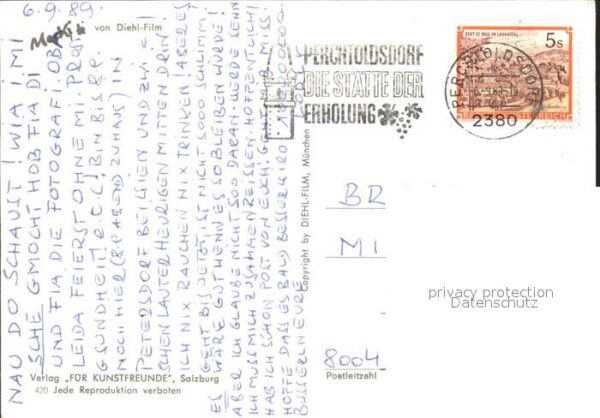 6.9.89.
von Diehl-Film
NAU DO SCHAUST! WIA I MI
SCHE GMOCHT HOB FIA DI
UND FIA DIE FOTOGRAFI OBA
LEIDA FEIERST OHNE MI. PROST
GSUNDHEIT! BIN BIS 8.9.
NOCH HIER (8. ABEND ZUHAUS) IN
PETERSDORF BEI LISIEN UND ZWI-
SCHEN LAUTER HEURIGEN MITTEN DRIN
ICH NIX RAUCHEN NIX TRINKEN! ABER ES
GEHT BIS JETZT IST NICHT SOOO SCHLIMM
ES WÄRE GUT WENN ES SO BLEIBEN WÜRDE!
ABER ICH GLAUBE NICHT SOO DARAN. WERDE
ICH MUSS MICH ZUSAMMENREISSEN. HOFFENTLICH
HAB ICH SCHON POST VON EUCH! GEHT MIR MIES!
HOFFE DASS ES BALD BESSER
BUSSERLN EURE
Verlag „FÜR KUNSTFREUNDE", Salzburg
420 Jede Reproduktion verboten
Copyright by DIEHL-FILM, München
PERCHTOLDSDORF
DIE STÄTTE DER
ERHOLUNG
PERCHTOLDSDORF
2380
STIFT ST. PAUL IM LAVANTTAL
5s
REPUBLIK ÖSTERREICH
BR
MI
8004
Postleitzahl
privacy protection
Datenschutz